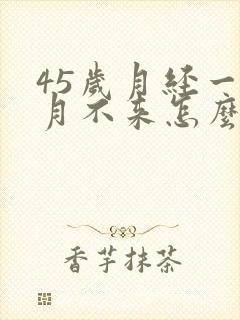 45歲月経一
月不来怎麼
香芋抹茶